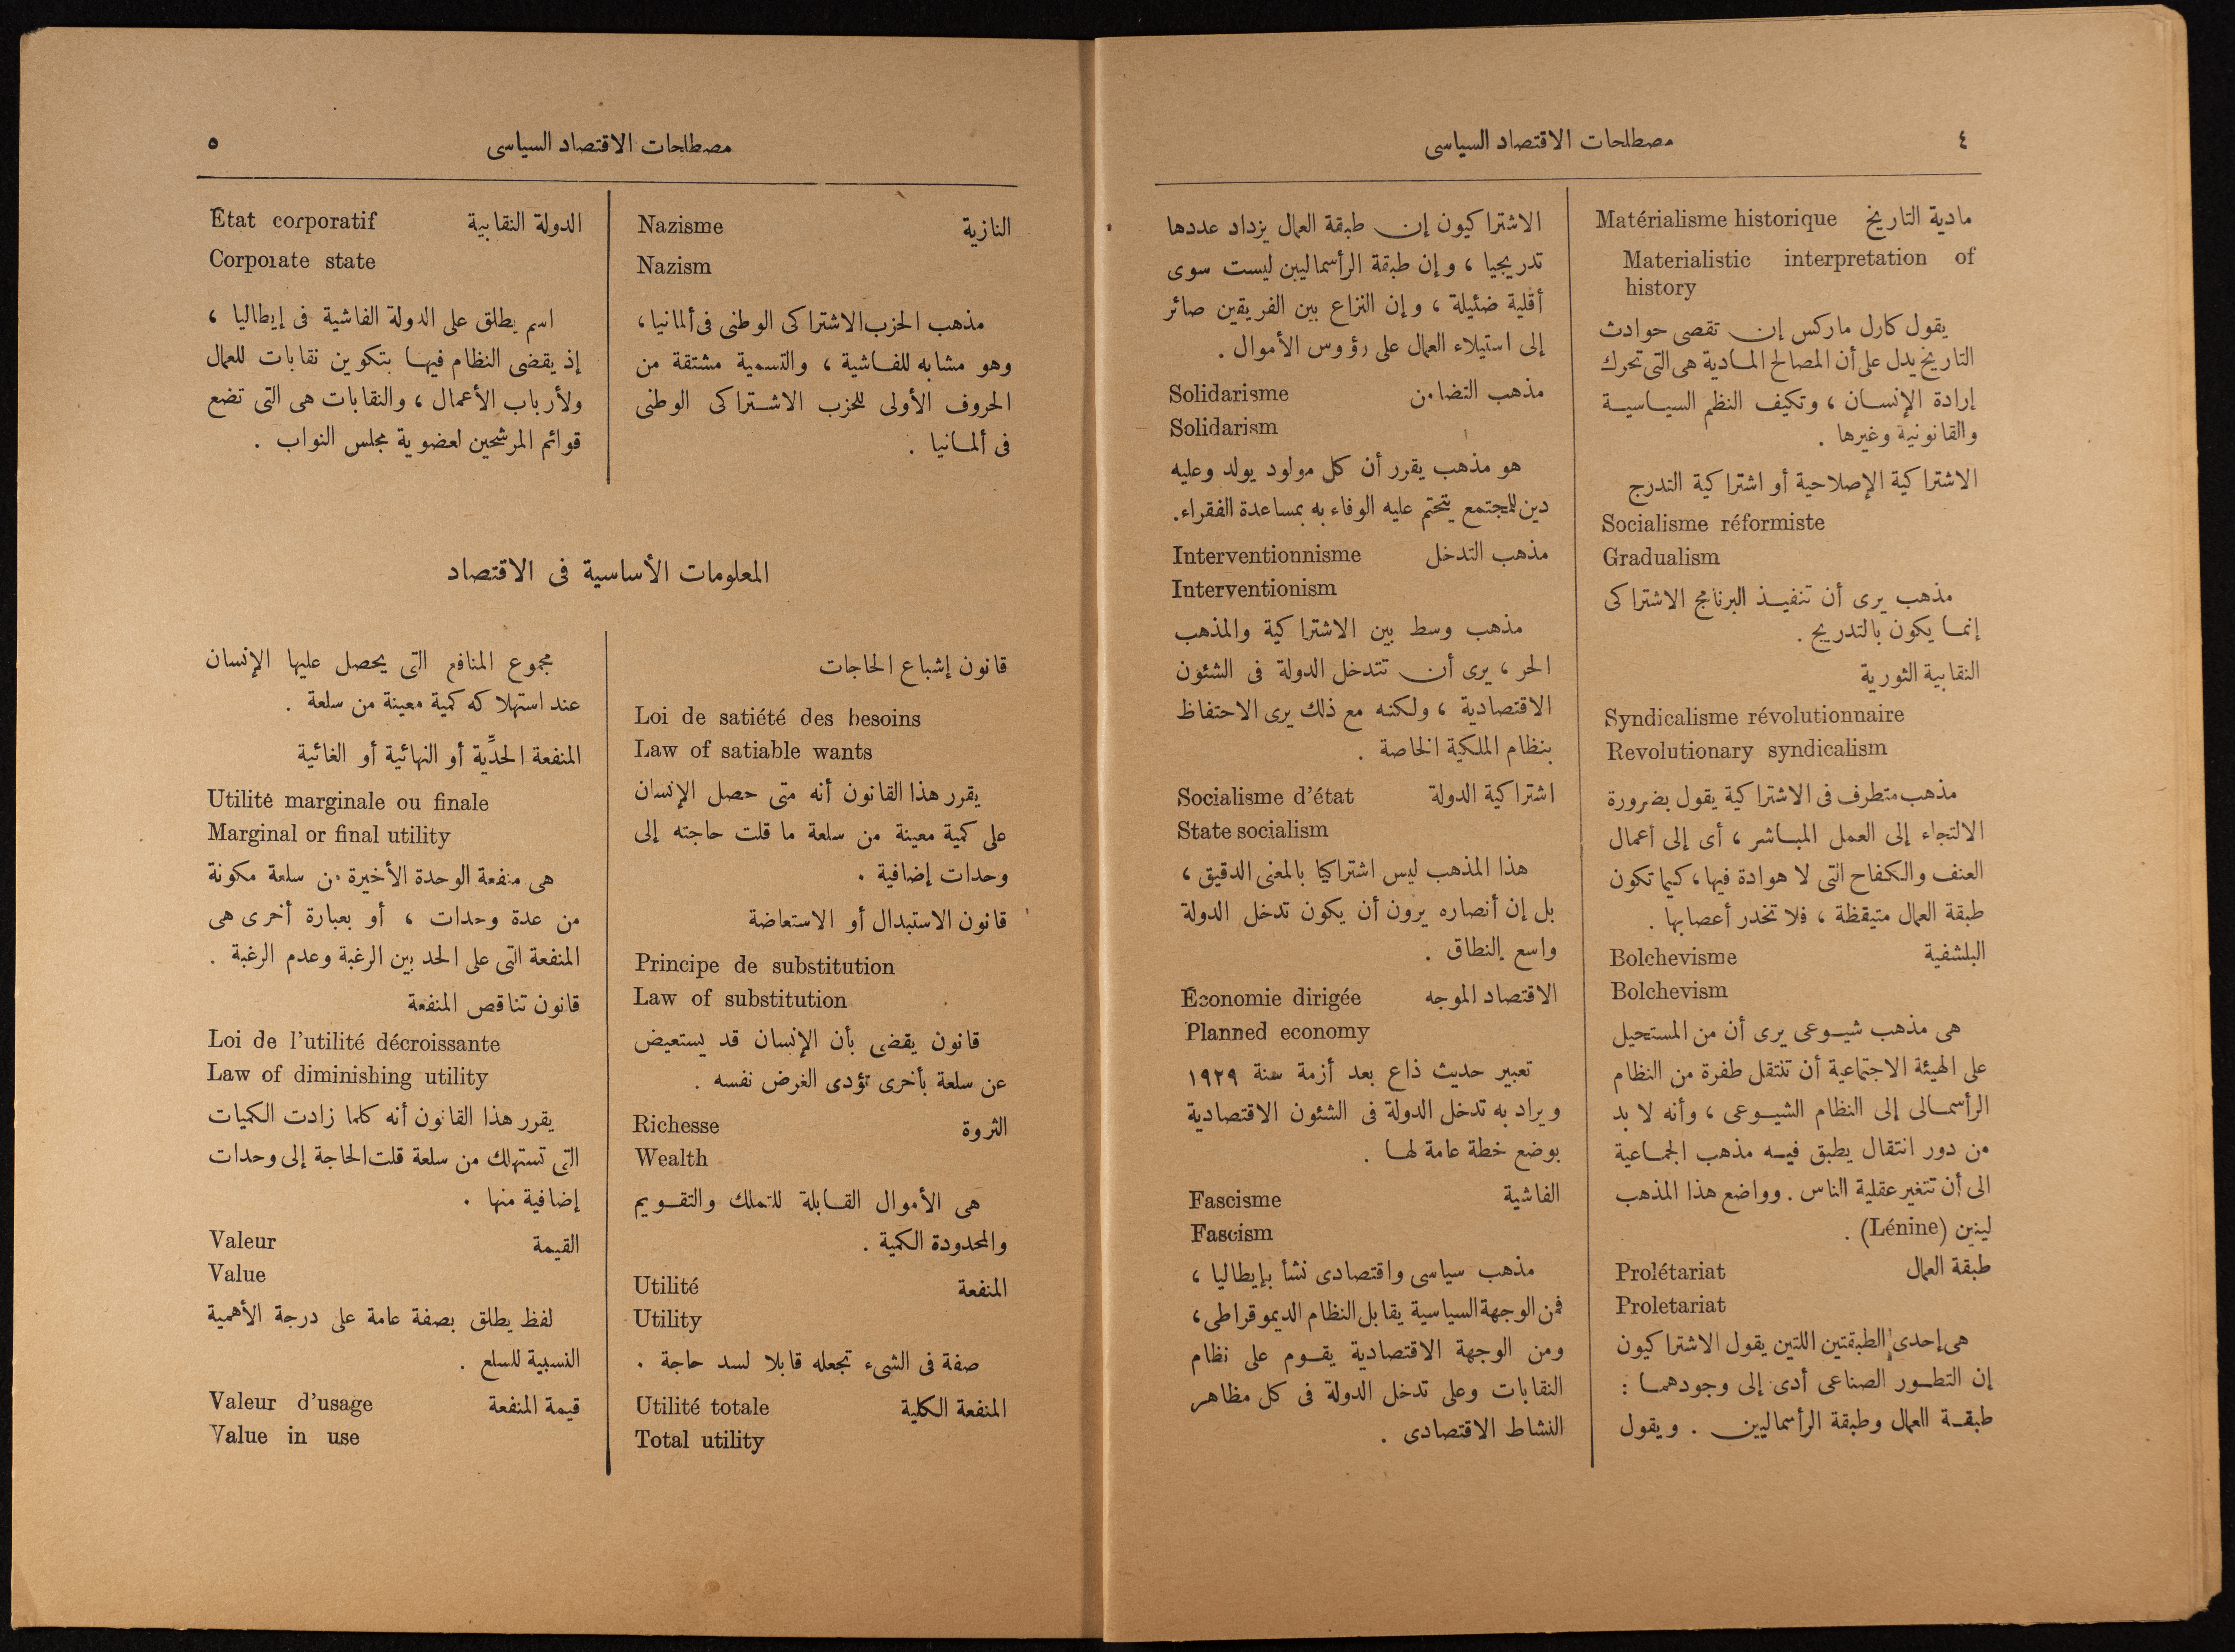 ٤
مصطلحات الاقتصاد السياسى
مادية التاريخ Matérialisme historique
Materialistic interpretation of
history
يقول كارل ماركس إن تقصى حوادث
التاريخ يدل على أن المصالح المادية هى التى تحرك
إرادة الإنسان ، وتكيف النظم السياسية
والقانونية وغيرها .
الاشتراكية الإصلاحية أو اشتراكية التدرج
Socialisme réformiste
Gradualism
مذهب يرى أن تنفيذ البرنامج الاشتراكى
إنما يكون بالتدريج .
النقابية الثورية
Syndicalisme révolutionnaire
Revolutionary syndicalism
مذهب متطرف فى الاشتراكية يقول بضرورة
الالتجاء إلى العمل المباشر ، أى إلى أعمال
العنف والكفاح التى لا هوادة فيها ، كيما تكون
طبقة العمال متيقظة ، فلا تخدر أعصابها .
البلشفية Bolchevisme
Bolchevism
هى مذهب شيوعى يرى أن من المستحيل
على الهيئة الاجتماعية أن تنتقل طفرة من النظام
الرأسمالى إلى النظام الشيوعى ، وأنه لا بد
من دور انتقال يطبق فيه مذهب الجماعية
الى أن تتغير عقلية الناس . وواضع هذا المذهب
لينين (Lénine) .
طبقة العمال Prolétariat
Proletariat
هى إحدى الطبقتين اللتين يقول الاشتراكيون
إن التطور الصناعى أدى إلى وجودهما :
طبقة العمال وطبقة الرأسماليين . ويقول
الاشتراكيون إن طبقة العمال يزداد عددها
تدريجيا ، وإن طبقة الرأسماليين ليست سوى
أقلية ضئيلة ، وإن النزاع بين الفريقين صائر
إلى استيلاء العمال على رؤوس الأموال .
مذهب التضامن Solidarisme
Solidarism
هو مذهب يقرر أن كل مولود يولد وعليه
دين للمجتمع يتحتم عليه الوفاء به بمساعدة الفقراء.
مذهب التدخل Interventionnisme
Interventionism
مذهب وسط بين الاشتراكية والمذهب
الحر ، يرى أن تتدخل الدولة فى الشئون
الاقتصادية ، ولكنه مع ذلك يرى الاحتفاظ
بنظام الملكية الخاصة .
اشتراكية الدولة Socialisme d'état
State socialism
هذا المذهب ليس اشتراكيا بالمعنى الدقيق ،
بل إن أنصاره يرون أن يكون تدخل الدولة
واسع النطاق .
الاقتصاد الموجه Économie dirigée
Planned economy
تعبير حديث ذاع بعد أزمة سنة ١٩٢٩
ويراد به تدخل الدولة فى الشئون الاقتصادية
بوضع خطة عامة لها .
الفاشية Fascisme
Fascism
مذهب سياسى واقتصادى نشأ بإيطاليا ،
فمن الوجهة السياسية يقابل النظام الديموقراطى ،
ومن الوجهة الاقتصادية يقوم على نظام
النقابات وعلى تدخل الدولة فى كل مظاهر
النشاط الاقتصادى .
مصطلحات الاقتصاد السياسى
٥
النازية Nazisme
Nazism
مذهب الحزب الاشتراكى الوطنى فى ألمانيا ،
وهو مشابه للفاشية ، والتسمية مشتقة من
الحروف الأولى للحزب الاشتراكى الوطنى
فى ألمانيا .
الدولة النقابية État corporatif
Corporate state
اسم يطلق على الدولة الفاشية فى إيطاليا ،
إذ يقضى النظام فيها بتكوين نقابات للعمال
ولأرباب الأعمال ، والنقابات هى التى تضع
قوائم المرشحين لعضوية مجلس النواب .
المعلومات الأساسية فى الاقتصاد
قانون إشباع الحاجات
Loi de satiété des besoins
Law of satiable wants
يقرر هذا القانون أنه متى حصل الإنسان
على كمية معينة من سلعة ما قلت حاجته إلى
وحدات إضافية .
قانون الاستبدال أو الاستعاضة
Principe de substitution
Law of substitution
قانون يقضى بأن الإنسان قد يستعيض
عن سلعة بأخرى تؤدى الغرض نفسه .
الثروة Richesse
Wealth
هى الأموال القابلة للتملك والتقويم
والمحدودة الكمية .
المنفعة Utilité
Utility
صفة فى الشىء تجعله قابلا لسد حاجة .
المنفعة الكلية Utilité totale
Total utility
مجموع المنافع التى يحصل عليها الإنسان
عند استهلاكه كمية معينة من سلعة .
المنفعة الحدِّية أو النهائية أو الغائية
Utilité marginale ou finale
Marginal or final utility
هى منفعة الوحدة الأخيرة من سلعة مكونة
من عدة وحدات ، أو بعبارة أخرى هى
المنفعة التى على الحد بين الرغبة وعدم الرغبة .
قانون تناقص المنفعة
Loi de l'utilité décroissante
Law of diminishing utility
يقرر هذا القانون أنه كلما زادت الكميات
التى تستهلك من سلعة قلت الحاجة إلى وحدات
إضافية منها .
القيمة Valeur
Value
لفظ يطلق بصفة عامة على درجة الأهمية
النسبية للسلع .
قيمة المنفعة Valeur d'usage
Value in use